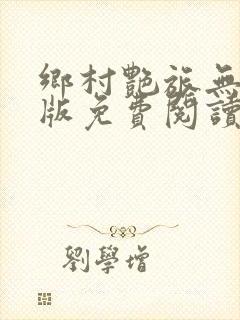 鄉村艷旅無
版免費閱讀
劉學增